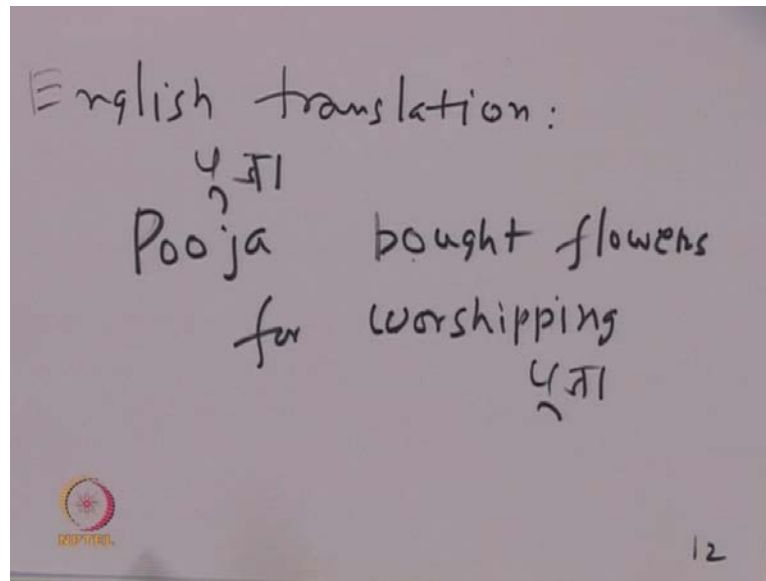 English translation:
पूजा
Pooja bought flowers
for worshipping
पूजा
NPTEL
12